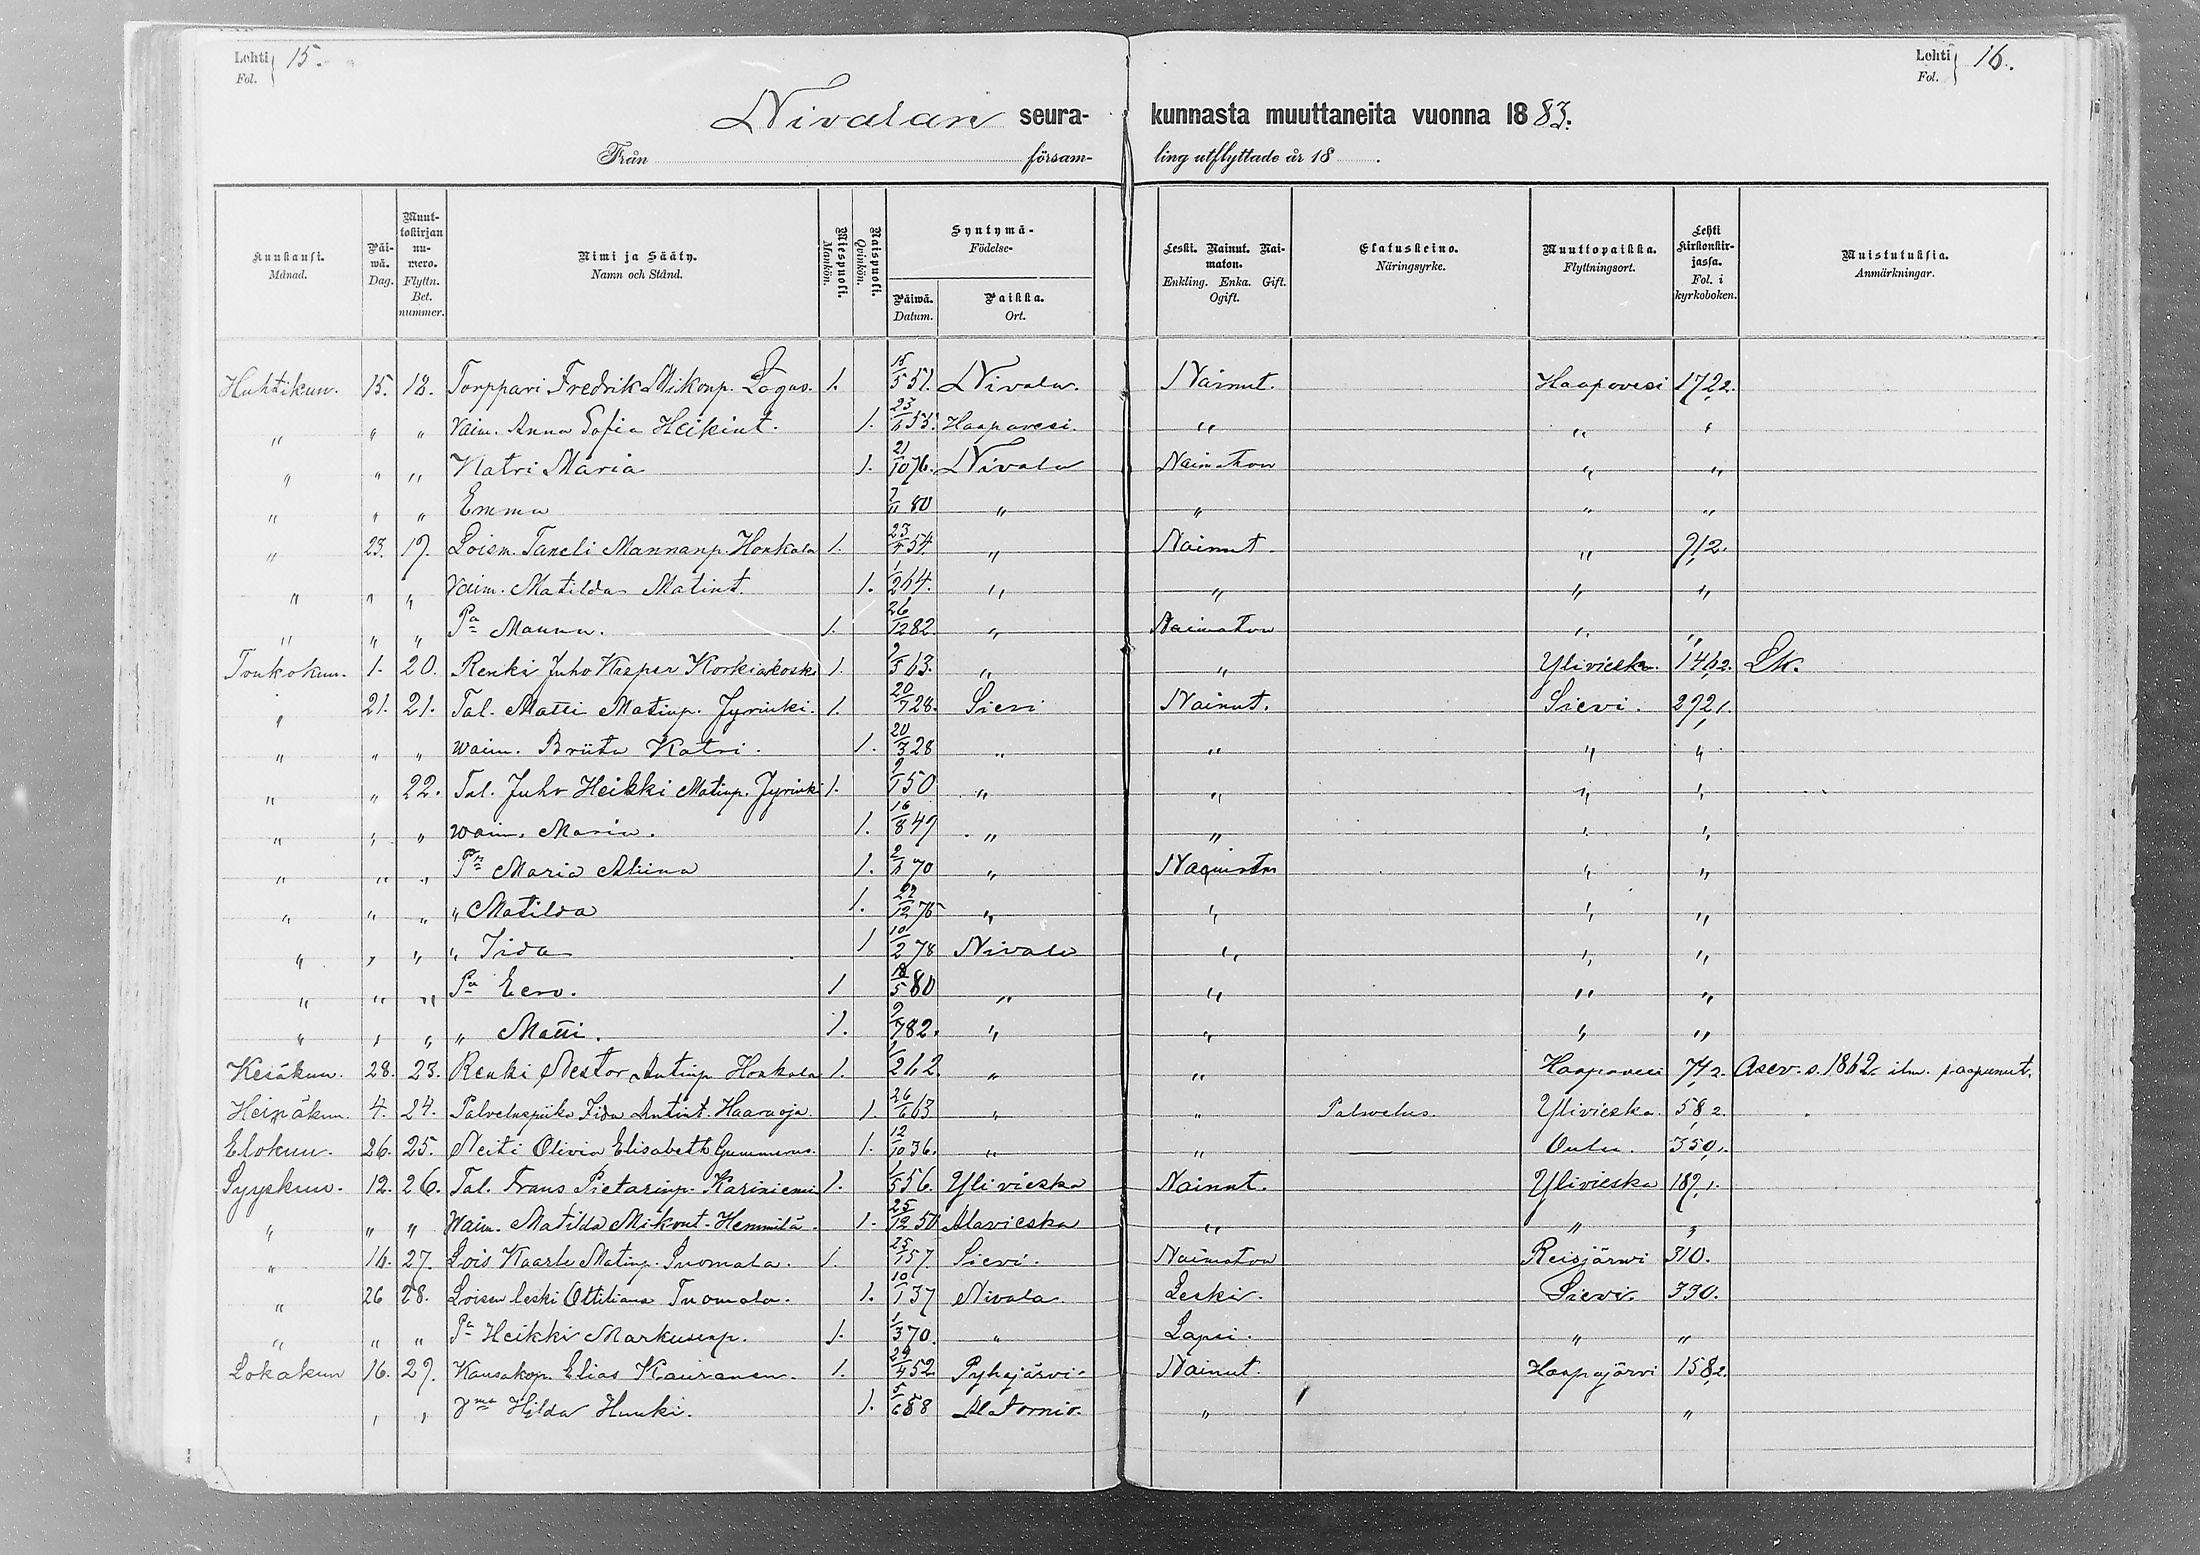 Lehti 15.
Fol.
Lehti 16.
Fol.
Nivalan seura- kunnasta muuttaneita vuonna 1883.
Från försam- ling utflyttade år 18 .
Kuukausi. Månad. Päiwä. Dag. Muuttokirjan numero. Flyttn. Bet. nummer. Nimi ja Sääty. Namn och Stånd. Miespuoli. Mankön. Naispuoli. Qvinkön. Syntymä- Födelse- Päiwä. Datum. Paikka. Ort. Leski. Nainut. Naimaton. Enkling. Enka. Gift. Ogift. Elatuskeino. Näringsyrke. Muuttopaikka. Flyttningsort. Lehti Kirkonkirjassa. Fol. i kyrkoboken. Muistutuksia. Anmärkningar.
Huhtikuu. 15. 18. Torppari Fredrik Mikonp. Logus. 1. 15/5 51. Nivala. Nainut. Haapavesi 172,2.
" " " Vaim. Anna Sofia Heikint. 1. 23/6 53. Haapavesi. " " "
" " " Katri Maria 1. 21/10 76. Nivala Naimaton " "
" " " Emma 7/11 80 " " " "
" 23. 19. Loism. Taneli Mannanp. Honkala 1. 23/4 54. " Nainut. " 9,2.
" " " Vaim. Matilda Matint. 1. 1/2 64. " " " "
" " " Pa Maunu. 1. 26/12 82. " Naimaton " "
Toukokuu. 1. 20. Renki Juho Kasper Korkiakoski 1. 9/5 63. " " Ylivieska. 146,2. Lk.
" 21. 21. Tal. Matti Matinp. Jyrinki. 1. 20/7 28. Sievi Nainut. Sievi. 292,1.
" " " waim. Briita Katri. 1. 20/3 28 " " " "
" " 22. Tal. Juho Heikki Matinp. Jyrinki 1. 9/1 50 " " " "
" " " waim. Maria. 1. 16/8 49 " " " "
" " " Tr Maria Aliina 1. 2/6 70 " " "
" " " " Matilda 1. 22/12 75 " " " "
" " " " Iida 1 10/2 78 Nivala " " "
" " " Pa Eero. 1 18/5 80 " " " "
" " " " Matti. 1. 9/7 82. " " " "
Kesäkuu. 28. 23. Renki Nestor Antinp. Honkala 1. 1/2 62. " " Haapavesi 74,2. Asev. s. 1862 ilm. saapunut.
Heinäkuu. 4. 24. Palveluspiika Iida Antint. Haaraoja. 1. 26/6 63 " " Palwelus. Ylivieska. 58,2.
Elokuu. 26. 25. Neiti Olivia Elisabeth Gummerus. 1. 12/10 36. " " — Oulu. 350,1.
Syyskuu. 12. 26. Tal. Frans Pietarinp. Kariniemi 1. 1/5 56. Ylivieska Nainut. Ylivieska 189,1.
" " " Waim. Matilda Mikont. Hemmilä. 1. 25/12 50 Alavieska " " "
" 16. 27. Lois Kaarle Matinp. Tuomala. 1. 25/1 57. Sievi. Naimaton Reisjärwi 310.
" 26 28. Loisen leski Ottiliana Tuomala. 1. 10/1 37 Nivala. Leski. Sievi. 330.
" " " Pa Heikki Markusenp. 1. 1/3 70. " Lapsi. " "
Lokakuu 16. 29. Kansakop. Elias Kauranen. 1. 29/4 52 Pyhäjärvi. Nainut. Haapajärvi 158,2.
" " Vma Hilda Huuki. 1. 5/6 58 Alatornio. " "